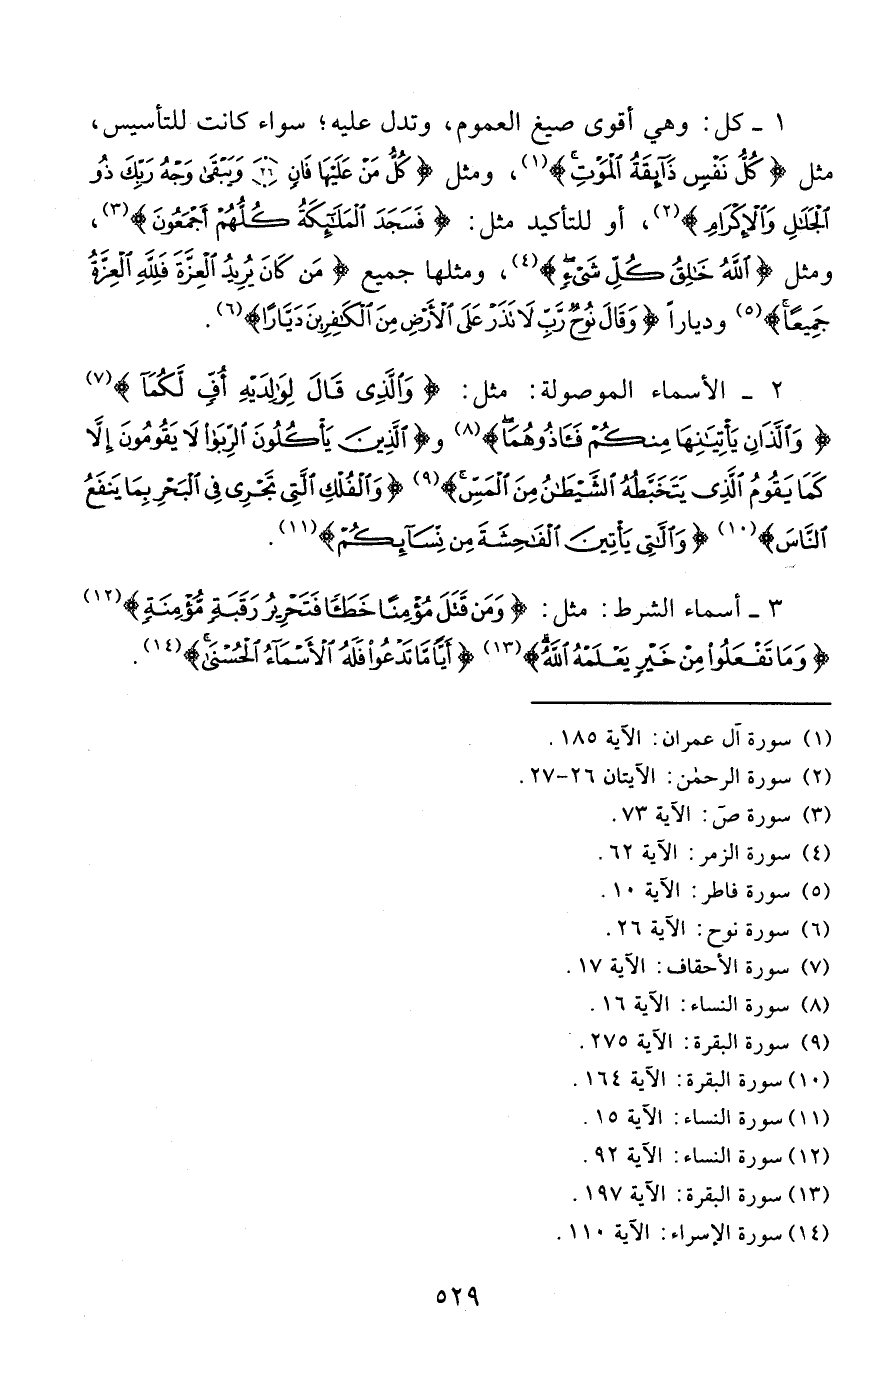 ١ ـ كل: وهي أقوى صيغ العموم، وتدل عليه؛ سواء كانت للتأسيس،
مثل ﴿ كُلُّ نَفْسٍ ذَآئِقَةُ ٱلْمَوْتِ ﴾(١)، ومثل ﴿ كُلُّ مَنْ عَلَيْهَا فَانٍ ۝٢٦ وَيَبْقَىٰ وَجْهُ رَبِّكَ ذُو
ٱلْجَلَٰلِ وَٱلْإِكْرَامِ ﴾(٢)، أو للتأكيد مثل: ﴿ فَسَجَدَ ٱلْمَلَٰٓئِكَةُ كُلُّهُمْ أَجْمَعُونَ ﴾(٣)،
ومثل ﴿ ٱللَّهُ خَٰلِقُ كُلِّ شَىْءٍ ﴾(٤)، ومثلها جميع ﴿ مَن كَانَ يُرِيدُ ٱلْعِزَّةَ فَلِلَّهِ ٱلْعِزَّةُ
جَمِيعًا ﴾(٥) ودياراً ﴿ وَقَالَ نُوحٌ رَّبِّ لَا تَذَرْ عَلَى ٱلْأَرْضِ مِنَ ٱلْكَٰفِرِينَ دَيَّارًا ﴾(٦).
٢ ـ الأسماء الموصولة: مثل: ﴿ وَٱلَّذِى قَالَ لِوَٰلِدَيْهِ أُفٍّ لَّكُمَآ ﴾(٧)
﴿ وَٱلَّذَانِ يَأْتِيَٰنِهَا مِنكُمْ فَـَٔاذُوهُمَا ﴾(٨) و﴿ ٱلَّذِينَ يَأْكُلُونَ ٱلرِّبَوٰا۟ لَا يَقُومُونَ إِلَّا
كَمَا يَقُومُ ٱلَّذِى يَتَخَبَّطُهُ ٱلشَّيْطَٰنُ مِنَ ٱلْمَسِّ ﴾(٩) ﴿ وَٱلْفُلْكِ ٱلَّتِى تَجْرِى فِى ٱلْبَحْرِ بِمَا يَنفَعُ
ٱلنَّاسَ ﴾(١٠) ﴿ وَٱلَّٰتِى يَأْتِينَ ٱلْفَٰحِشَةَ مِن نِّسَآئِكُمْ ﴾(١١).
٣ ـ أسماء الشرط: مثل: ﴿ وَمَن قَتَلَ مُؤْمِنًا خَطَـًٔا فَتَحْرِيرُ رَقَبَةٍ مُّؤْمِنَةٍ ﴾(١٢)
﴿ وَمَا تَفْعَلُوا۟ مِنْ خَيْرٍ يَعْلَمْهُ ٱللَّهُ ﴾(١٣) ﴿ أَيًّا مَّا تَدْعُوا۟ فَلَهُ ٱلْأَسْمَآءُ ٱلْحُسْنَىٰ ﴾(١٤).
(١) سورة آل عمران: الآية ١٨٥.
(٢) سورة الرحمٰن: الآيتان ٢٦-٢٧.
(٣) سورة صَ: الآية ٧٣.
(٤) سورة الزمر: الآية ٦٢.
(٥) سورة فاطر: الآية ١٠.
(٦) سورة نوح: الآية ٢٦.
(٧) سورة الأحقاف: الآية ١٧.
(٨) سورة النساء: الآية ١٦.
(٩) سورة البقرة: الآية ٢٧٥.
(١٠) سورة البقرة: الآية ١٦٤.
(١١) سورة النساء: الآية ١٥.
(١٢) سورة النساء: الآية ٩٢.
(١٣) سورة البقرة: الآية ١٩٧.
(١٤) سورة الإسراء: الآية ١١٠.
٥٢٩